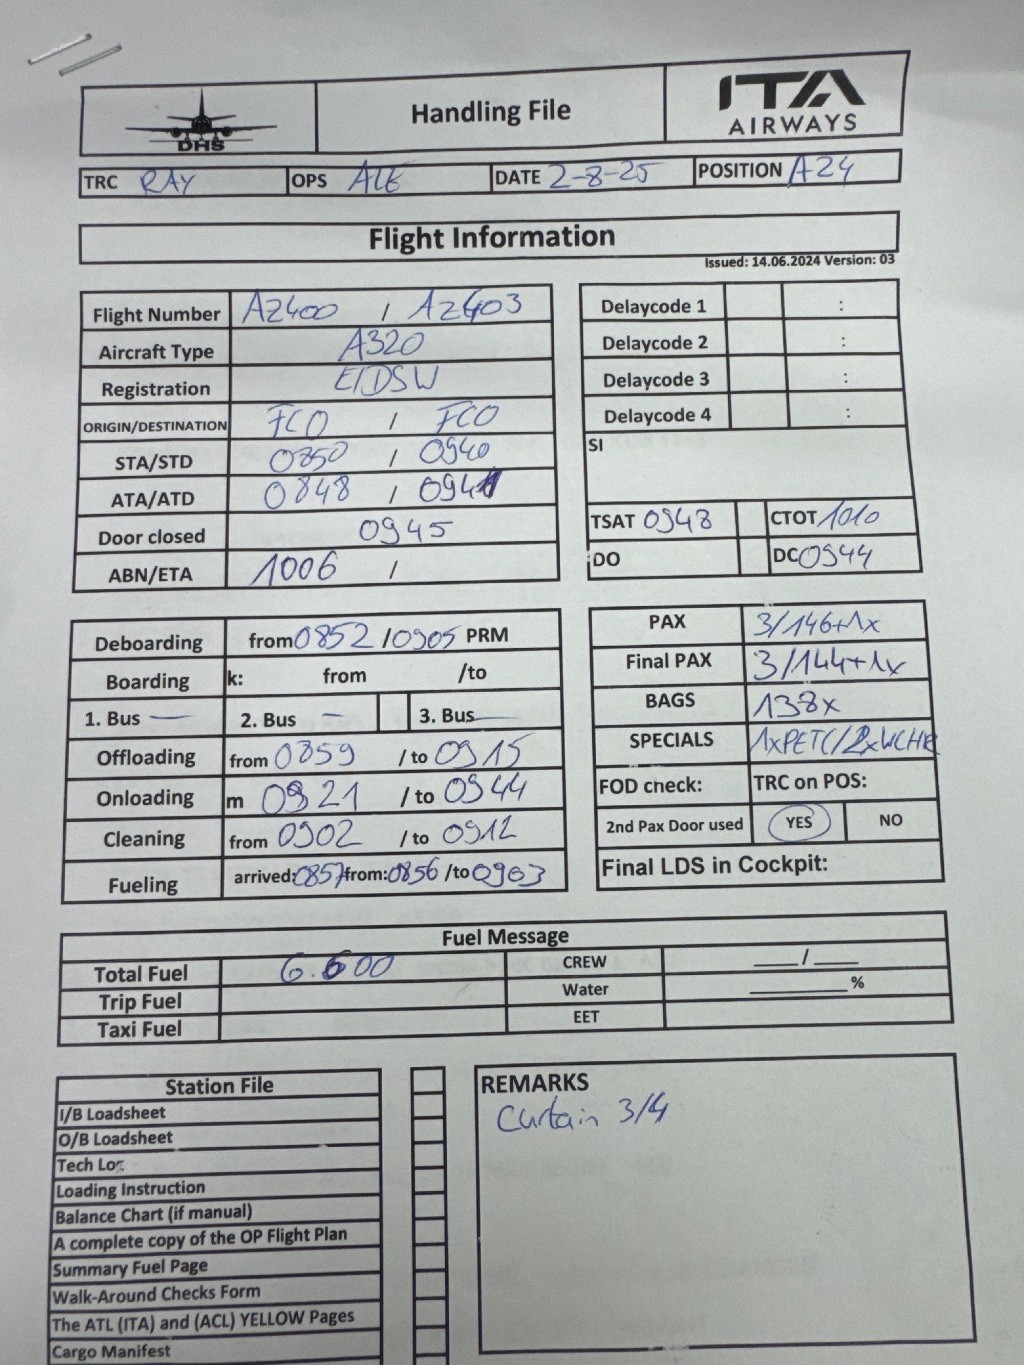 DHS
Handling File
ITA
AIRWAYS
TRC RAY OPS ALE DATE 2-8-25 POSITION A24
Flight Information
Issued: 14.06.2024 Version: 03
Flight Number AZ400 / AZ403
Aircraft Type A320
Registration EIDSW
ORIGIN/DESTINATION FCO / FCO
STA/STD 0850 / 0940
ATA/ATD 0848 / 0941
Door closed 0945
ABN/ETA 1006 /
Delaycode 1 :
Delaycode 2 :
Delaycode 3 :
Delaycode 4 :
SI
TSAT 0948 CTOT 1010
DO DC 0944
Deboarding from 0852 / 0905 PRM
Boarding k: from /to
1. Bus — 2. Bus — 3. Bus —
Offloading from 0859 / to 0915
Onloading m 0921 / to 0944
Cleaning from 0902 / to 0912
Fueling arrived: 0857 from: 0856 /to 0903
PAX 3/146+1x
Final PAX 3/144+1x
BAGS 138x
SPECIALS 1xPETC/2xWCHR
FOD check: TRC on POS:
2nd Pax Door used YES NO
Final LDS in Cockpit:
Fuel Message
Total Fuel 6.600 CREW ___/___
Trip Fuel Water ______%
Taxi Fuel EET
Station File
I/B Loadsheet
O/B Loadsheet
Tech Log
Loading Instruction
Balance Chart (if manual)
A complete copy of the OP Flight Plan
Summary Fuel Page
Walk-Around Checks Form
The ATL (ITA) and (ACL) YELLOW Pages
Cargo Manifest
REMARKS
Curtain 3/4